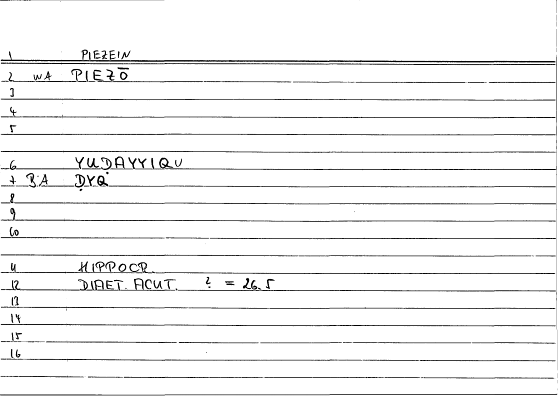 1 PIEZEIN
2 WA PIEZŌ
3
4
5
6 YUḌAYYIQU
7 B.A ḌYQ
8
9
10
11 HIPPOCR.
12 DIAET. ACUT. ? = 26.5
13
14
15
16